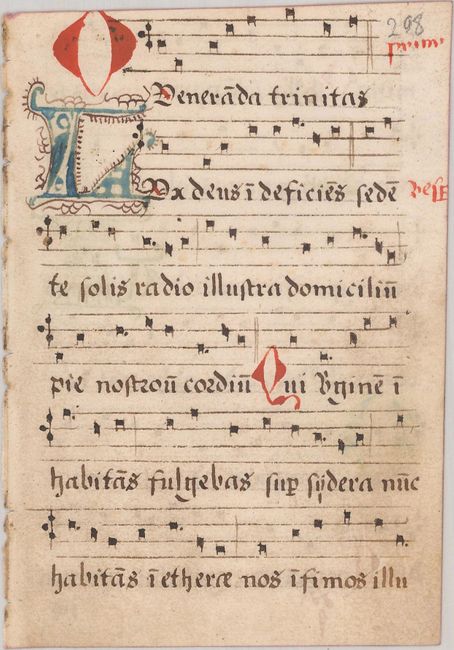 298
prim'
O Venerāda trinitas
Lux deus ī deficiēs sedē vesꝑ
te solis radio illustra domiciliū
pie nostroꝝ cordiū Qui Vʼginē ī
habitās fulgebas suꝑ sydera nūc
habitās ī etheræ nos īfimos illu